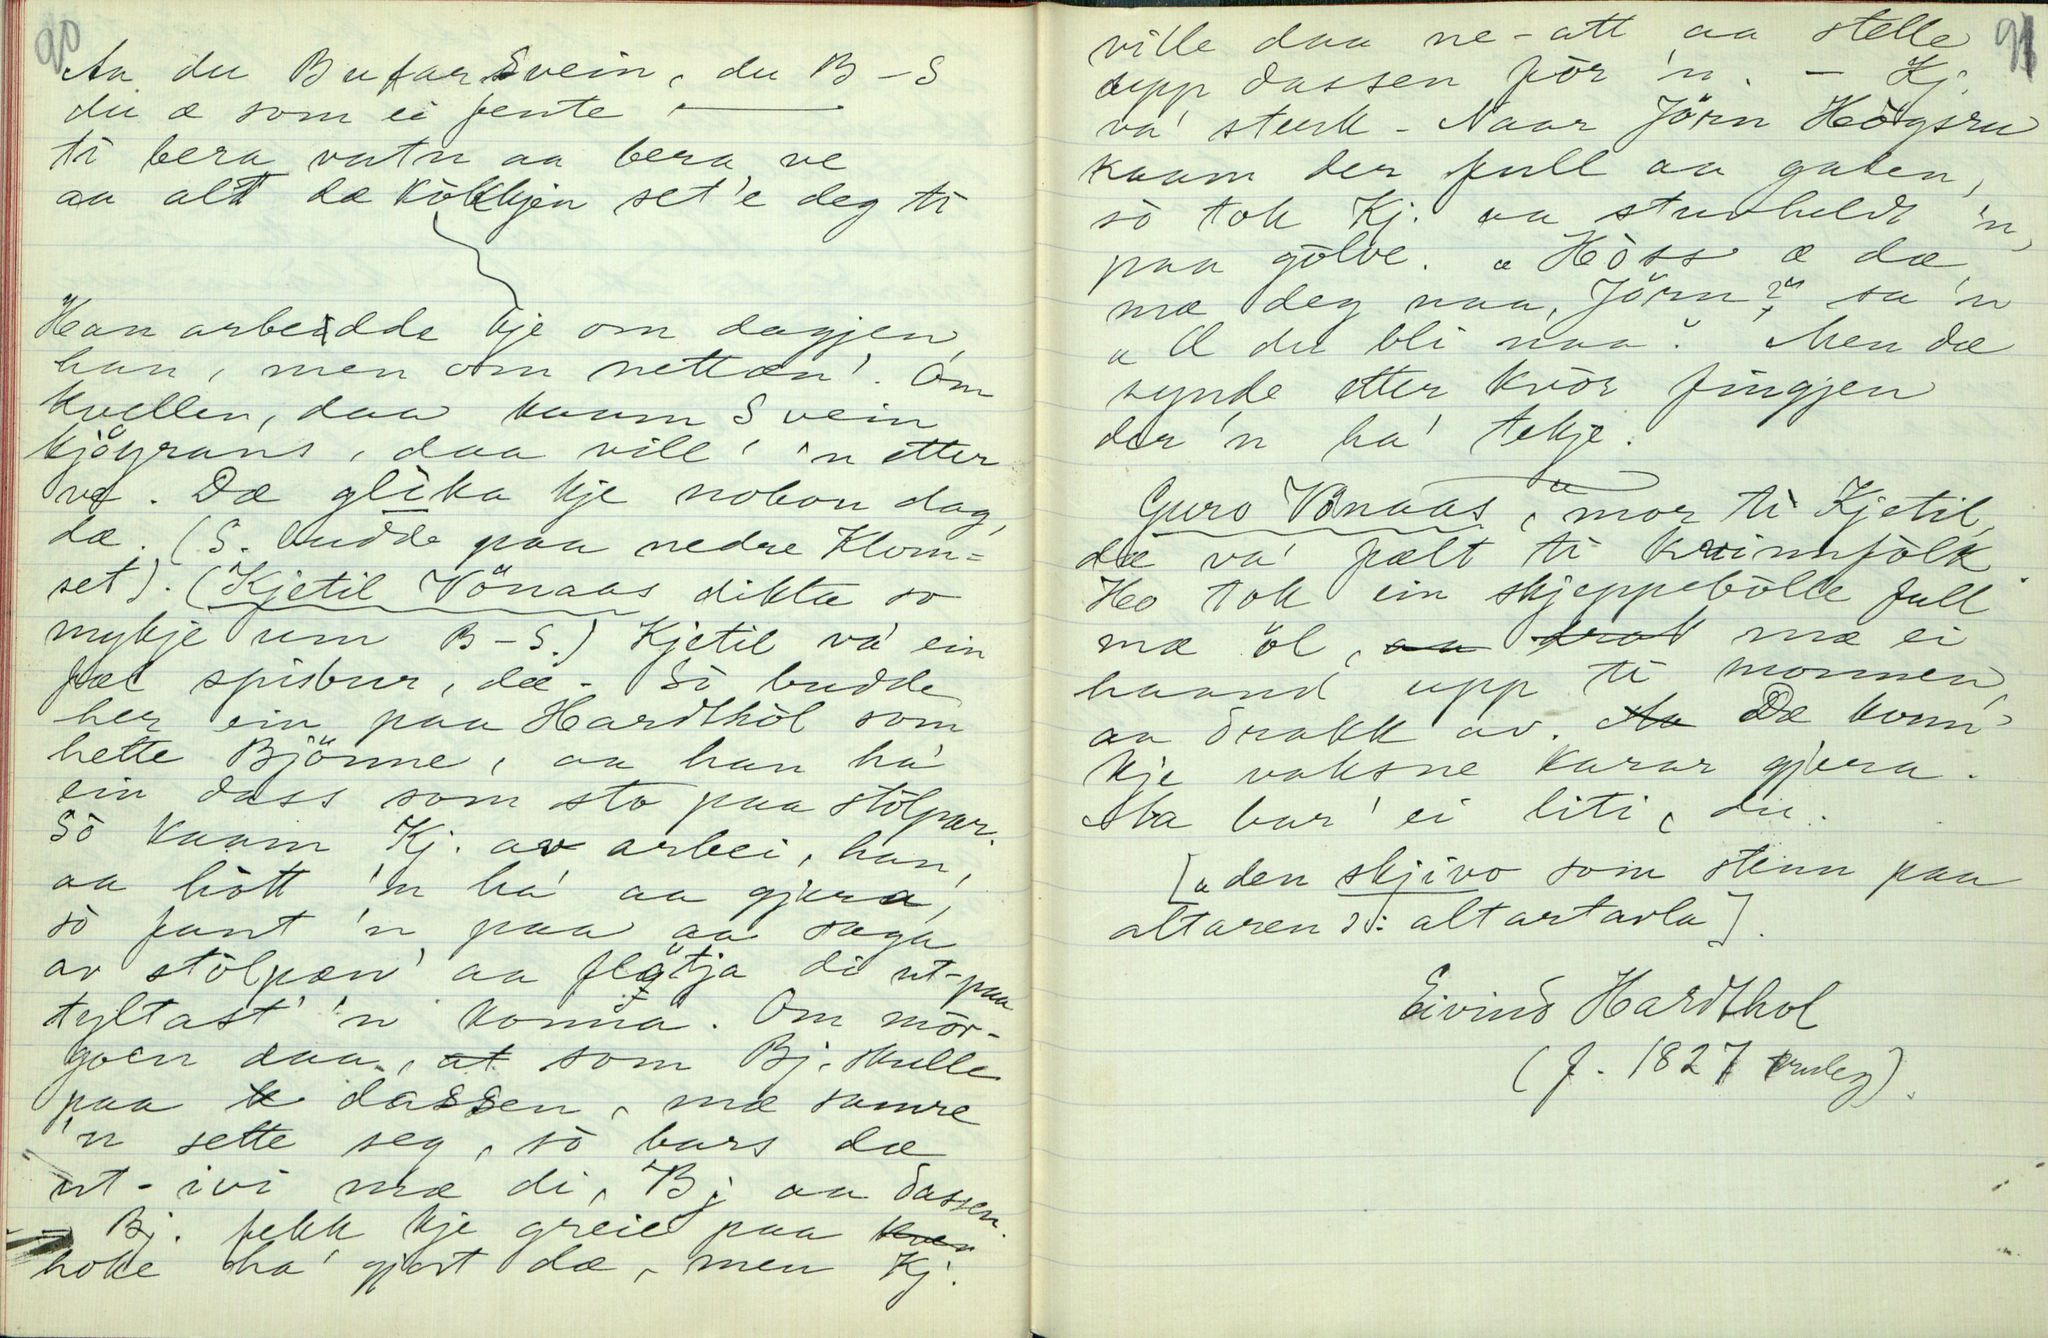 90
Aa du Bufar Svein, du B-S
du æ som ei jente
ti bera vatn aa bera ve
aa alt dæ kökkjen set'e deg ti
Han arbeidde kje om dagjen,
han, men om nettan'. Om
kvellen, daa kaam Svein
kjögrans, daa vill' 'n etter
ve. Dæ glika kje nokon dag,
dæ. (S. budde paa nedre Klom-
set). (Kjetil Vönaas dikta so
mykje um B-S.) Kjetil va' ein
fæl spisbur, dæ. Si budde
her ein paa Hardthol som
hette Bjönne, aa han ha'
ein dass som sto paa stölpar.
Sò kaam Kj. av arbei, han,
aa hòtt 'n ha' aa gjera,
sò fant 'n paa aa saga
av stòlpæn' aa flötja di ut-paa
tyltast' 'n konna. Om mòr-
goen daa, at som Bj. skulle
paa dassen, mæ samre
'n sette seg, sò bars dæ
ut-ivi mæ di, Bj aa dassen.
Bj. fekk kje greie paa kven
hoke ha' gjort dæ, men Kj.
91
ville daa ne-att aa stelle
upp dassen för 'n. - Kj.
va' sterk - Naar Jörn Högsru
kaam der full aa galen,
sò tok Kj. aa stuvheldt 'n,
paa gölve. "Höss æ dæ
mæ deg naa, Jörn?" sa 'n
"Æ du bli naa". Men dæ
synde etter kvör fingjen
der 'n ha' tekje.
Guro Vönaas, mor ti Kjetil,
dæ va' fælt ti kvinnfòlk.
Ho tok ein skjeppebölle full
mæ öl, aa drak mæ ei
haand upp ti monnen,
aa drakk av. Aa Dæ kom'
kje vaksne karar gjera.
Ha bar' ei liti, du.
["den skjivo som stenn paa
altaren" ɔ: altartavla].
Eivind Hardthol
(f. 1827 truleg).